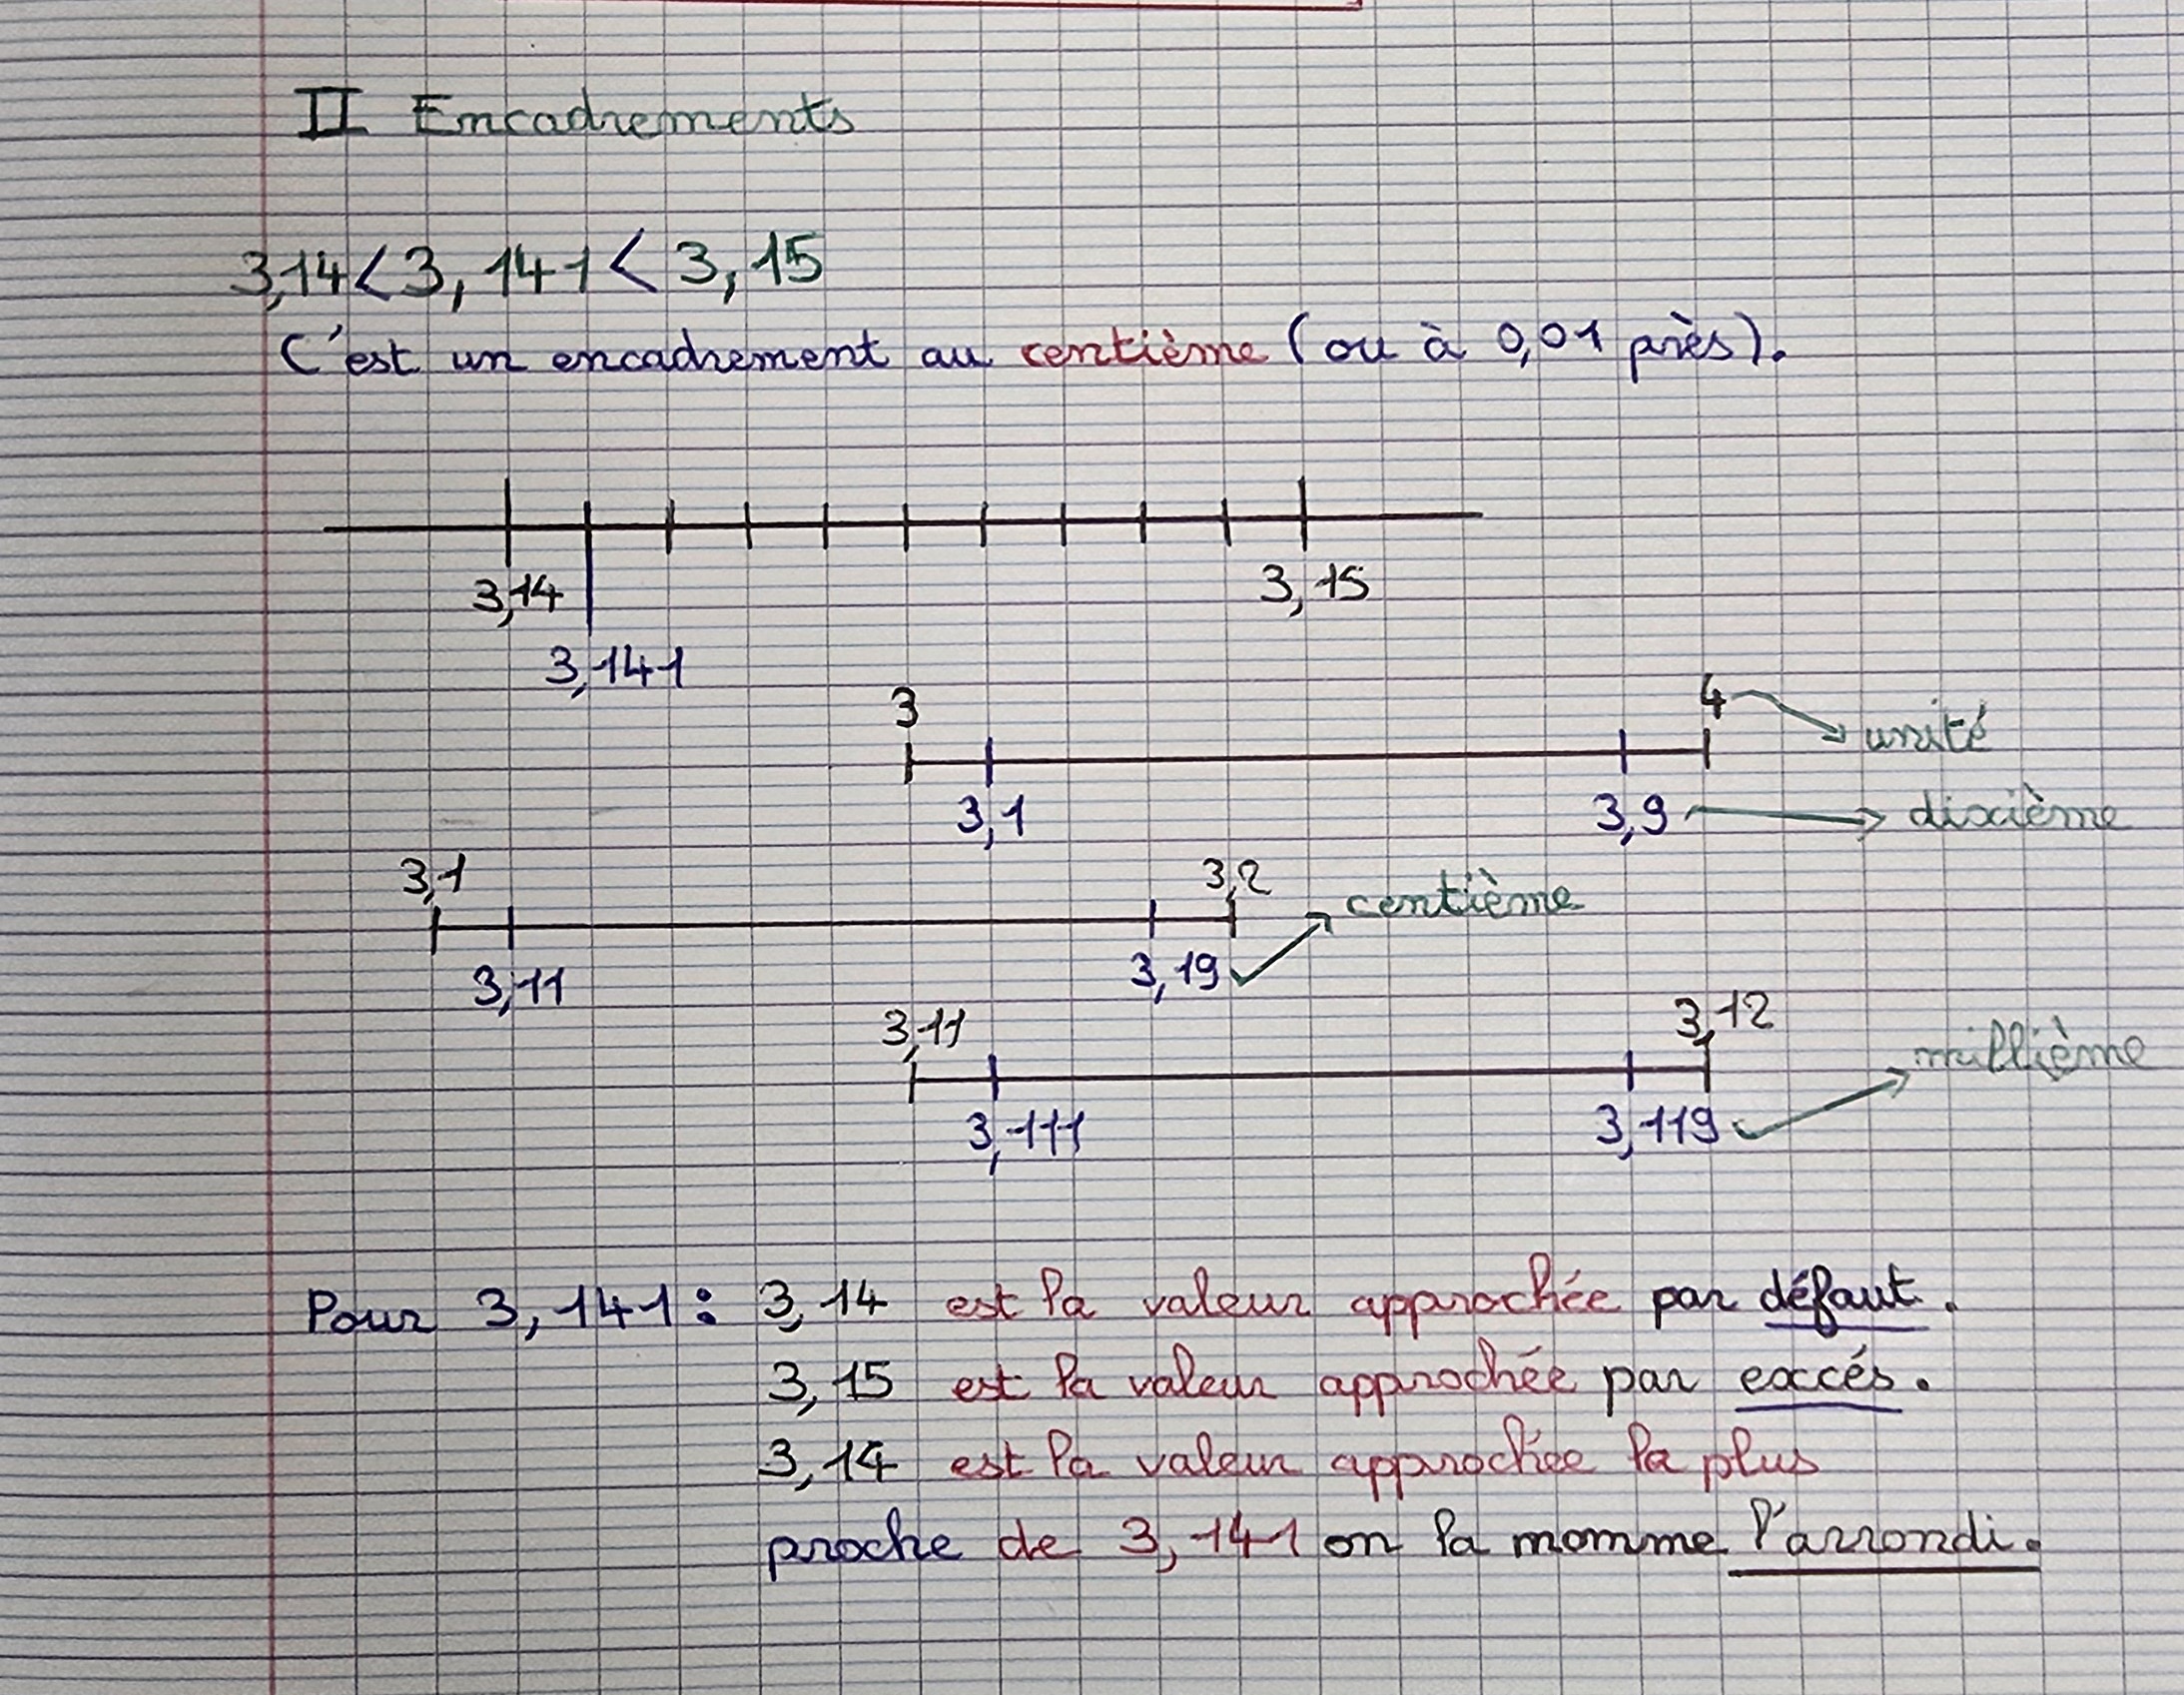 II Encadrements
3,14<3,141<3,15
C'est un encadrement au centième (ou à 0,01 près).
3,14 3,15
3,141
3 4 unité
3,1 3,9 dixième
3,1 3,2 centième
3,11 3,19
3,11 3,12 millième
3,111 3,119
Pour 3,141: 3,14 est la valeur approchée par défaut.
3,15 est la valeur approchée par excés.
3,14 est la valeur approchée la plus
proche de 3,141 on la nomme l'arrondi.